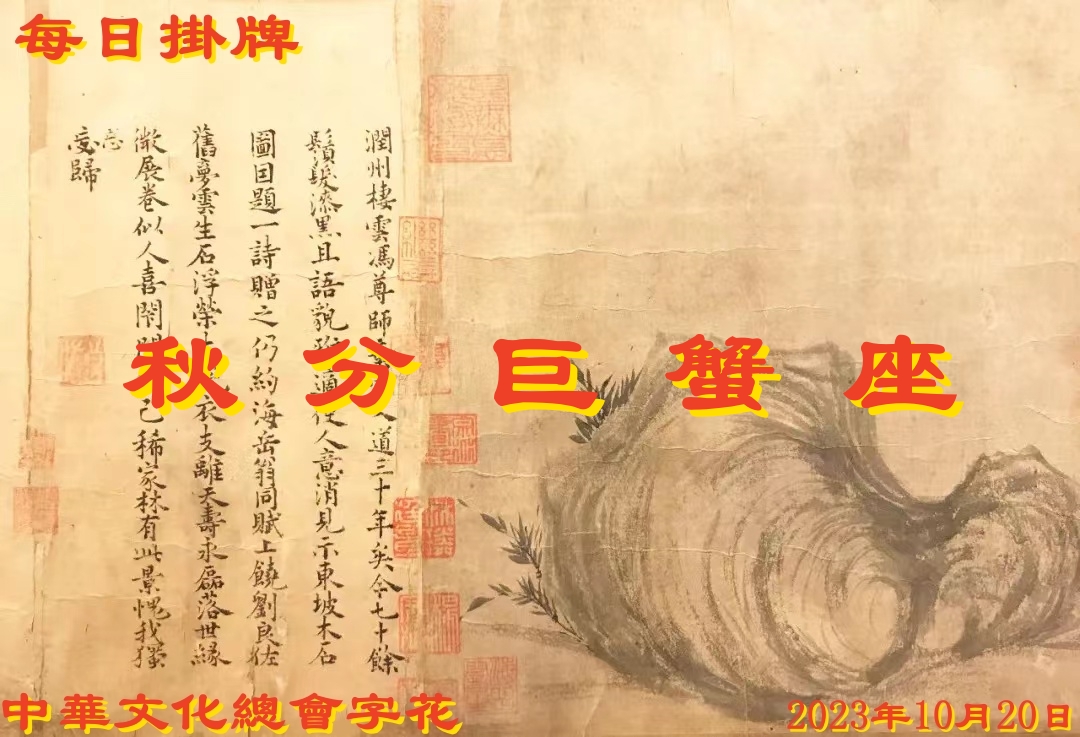 每日掛牌
潤州棲雲馮尊師 人道三十年矣今七十餘
鬚髮漆黑且語貌 適使人意消見示東坡木石
圖因題一詩贈之仍約海岳翁同賦上饒劉良佐
舊夢雲生石浮榮 衣支離天壽永磊落世緣
微展卷似人喜閑 已稀家林有此景愧我獨
忘
受歸
秋分巨蟹座
中華文化總會字花
2023年10月20日